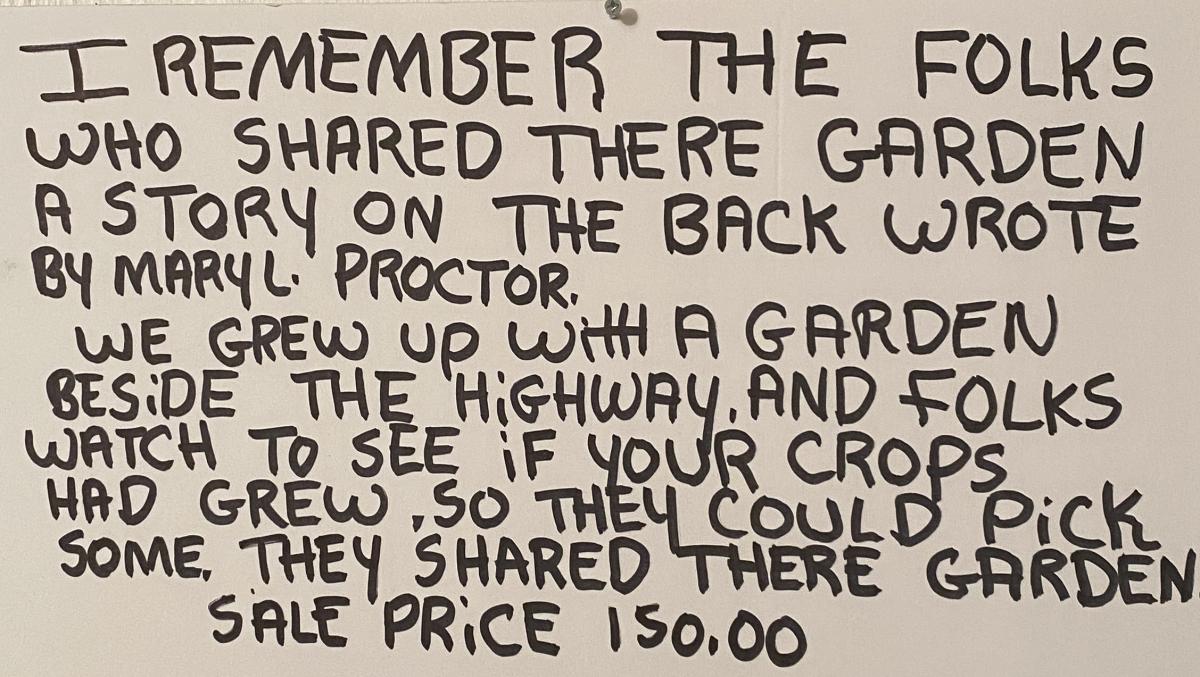 I REMEMBER THE FOLKS
WHO SHARED THERE GARDEN
A STORY ON THE BACK WROTE
BY MARY L. PROCTOR.
WE GREW UP WiTH A GARDEN
BESiDE THE HiGHWAY, AND FOLKS
WATCH TO SEE iF YOUR CROPS
HAD GREW, SO THEY COULD PiCK
SOME. THEY SHARED THERE GARDEN.
SALE PRiCE 150.00